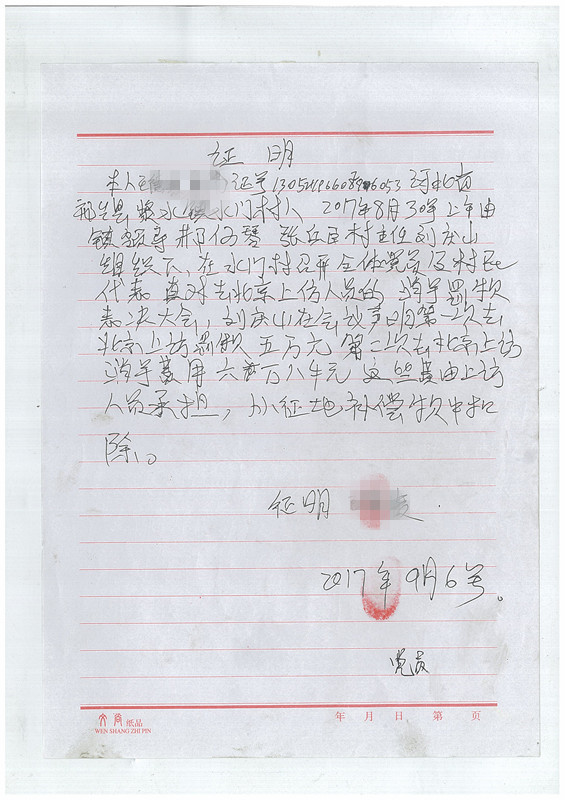 证 明
本人 证号 河北省
邢台县浆水镇水门村人 2017年8月30号上午由
镇领导 村主任刘庆山
组织下，在水门村召开全体党员及村民
代表 对去北京上访人员的 罚款
表决大会，刘庆山在会议声明第一次去
北京上访罚款 五万元 第二次去北京上访
费用 六 万八千元 这些费由上访
人员承担，从征地补偿款中扣
除。
证明
2017年9月6号。
党员
纸品
WEN SHANG ZHI PIN
年 月 日 第 页